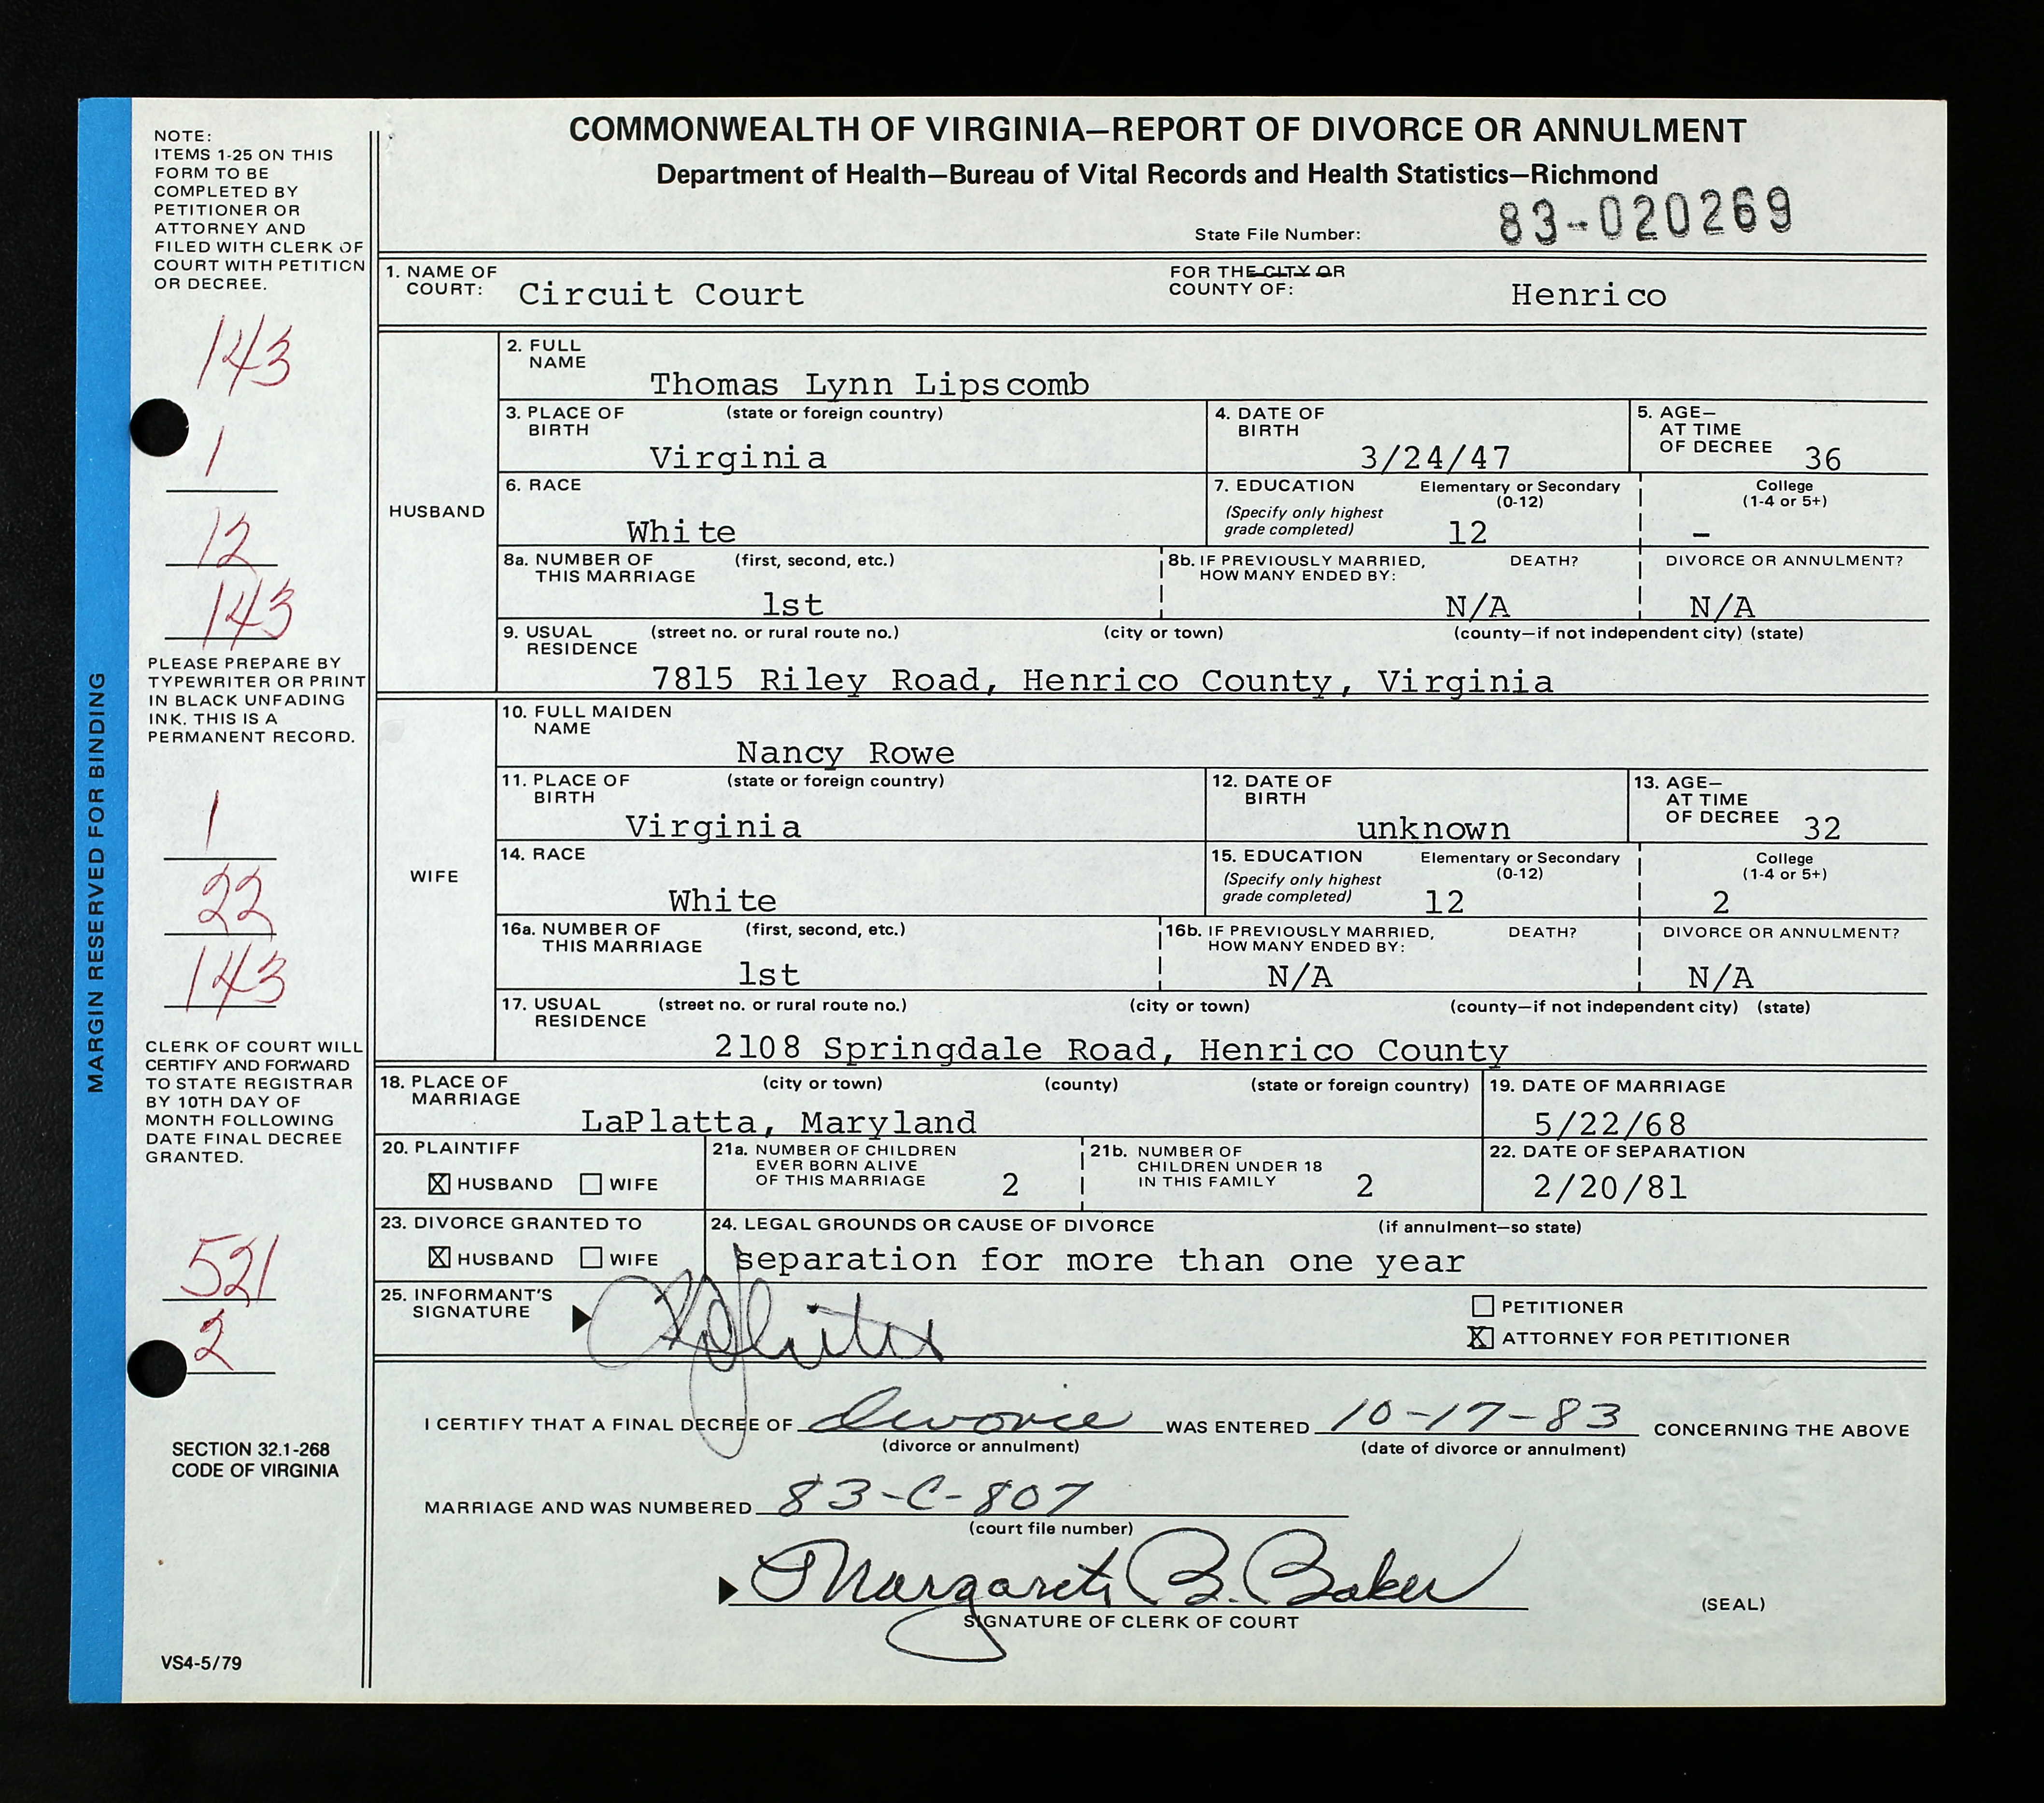 COMMONWEALTH OF VIRGINIA—REPORT OF DIVORCE OR ANNULMENT
Department of Health—Bureau of Vital Records and Health Statistics—Richmond
State File Number: 83-020269
MARGIN RESERVED FOR BINDING
NOTE:
ITEMS 1-25 ON THIS
FORM TO BE
COMPLETED BY
PETITIONER OR
ATTORNEY AND
FILED WITH CLERK OF
COURT WITH PETITION
OR DECREE.
143
1
12
143
PLEASE PREPARE BY
TYPEWRITER OR PRINT
IN BLACK UNFADING
INK. THIS IS A
PERMANENT RECORD.
1
22
143
CLERK OF COURT WILL
CERTIFY AND FORWARD
TO STATE REGISTRAR
BY 10TH DAY OF
MONTH FOLLOWING
DATE FINAL DECREE
GRANTED.
521
2
SECTION 32.1-268
CODE OF VIRGINIA
VS4-5/79
1. NAME OF COURT: Circuit Court FOR THE CITY OR COUNTY OF: Henrico
HUSBAND
2. FULL NAME Thomas Lynn Lipscomb
3. PLACE OF BIRTH (state or foreign country) Virginia 4. DATE OF BIRTH 3/24/47 5. AGE—AT TIME OF DECREE 36
6. RACE White 7. EDUCATION (Specify only highest grade completed) Elementary or Secondary (0-12) 12 College (1-4 or 5+) –
8a. NUMBER OF THIS MARRIAGE (first, second, etc.) 1st 8b. IF PREVIOUSLY MARRIED, HOW MANY ENDED BY: DEATH? N/A DIVORCE OR ANNULMENT? N/A
9. USUAL RESIDENCE (street no. or rural route no.) (city or town) (county—if not independent city) (state)
7815 Riley Road, Henrico County, Virginia
WIFE
10. FULL MAIDEN NAME Nancy Rowe
11. PLACE OF BIRTH (state or foreign country) Virginia 12. DATE OF BIRTH unknown 13. AGE—AT TIME OF DECREE 32
14. RACE White 15. EDUCATION (Specify only highest grade completed) Elementary or Secondary (0-12) 12 College (1-4 or 5+) 2
16a. NUMBER OF THIS MARRIAGE (first, second, etc.) 1st 16b. IF PREVIOUSLY MARRIED, HOW MANY ENDED BY: DEATH? N/A DIVORCE OR ANNULMENT? N/A
17. USUAL RESIDENCE (street no. or rural route no.) (city or town) (county—if not independent city) (state)
2108 Springdale Road, Henrico County
18. PLACE OF MARRIAGE (city or town) (county) (state or foreign country) LaPlatta, Maryland 19. DATE OF MARRIAGE 5/22/68
20. PLAINTIFF X HUSBAND WIFE 21a. NUMBER OF CHILDREN EVER BORN ALIVE OF THIS MARRIAGE 2 21b. NUMBER OF CHILDREN UNDER 18 IN THIS FAMILY 2 22. DATE OF SEPARATION 2/20/81
23. DIVORCE GRANTED TO X HUSBAND WIFE 24. LEGAL GROUNDS OR CAUSE OF DIVORCE (if annulment—so state) separation for more than one year
25. INFORMANT'S SIGNATURE
PETITIONER
X ATTORNEY FOR PETITIONER
I CERTIFY THAT A FINAL DECREE OF divorce WAS ENTERED 10-17-83 CONCERNING THE ABOVE
(divorce or annulment) (date of divorce or annulment)
MARRIAGE AND WAS NUMBERED 83-C-807
(court file number)
Margaret B. Baker
SIGNATURE OF CLERK OF COURT
(SEAL)